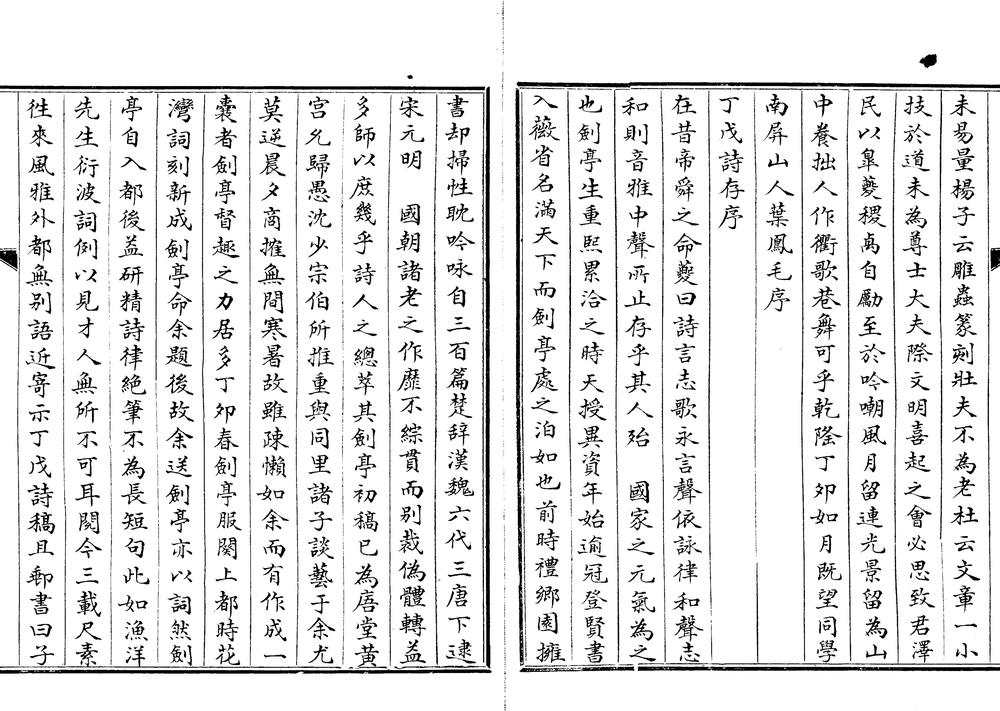 未易量揚子云雕蟲篆刻壯夫不為老杜云文章一小
技於道未為尊士大夫際文明喜起之會必思致君澤
民以臯夔稷卨自勵至於吟嘲風月留連光景留為山
中養拙人作衢歌巷舞可乎乾隆丁夘如月既望同學
南屏山人葉鳳毛序
丁戊詩存序
在昔帝舜之命夔曰詩言志歌永言聲依詠律和聲志
和則音雅中聲所止存乎其人殆 國家之元氣為之
也劍亭生重熙累洽之時天授異資年始逾冠登賢書
入薇省名滿天下而劍亭處之泊如也前時禮鄉園擁
書却掃性耽吟咏自三百篇楚辞漢魏六代三唐下逮
宋元明 國朝諸老之作靡不綜貫而别裁偽體轉益
多師以庶幾乎詩人之總萃其劍亭初稿已為唐堂黄
宫允歸愚沈少宗伯所推重與同里諸子談藝于余尤
莫逆晨夕商搉無間寒暑故雖疎懶如余而有作成一
囊者劍亭督趣之力居多丁夘春劍亭服闋上都時花
灣詞刻新成劍亭命余題後故余送劍亭亦以詞然劍
亭自入都後益研精詩律絶筆不為長短句此如漁洋
先生衍波詞例以見才人無所不可耳閱今三載尺素
徃來風雅外都無别語近寄示丁戊詩稿且郵書曰子